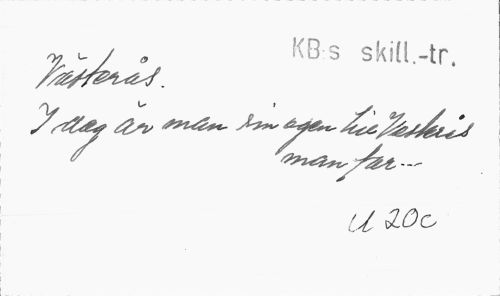 KB:s skill.-tr.
Västerås.
I dag är man sin egen lie Västerås
man far...
U 20c